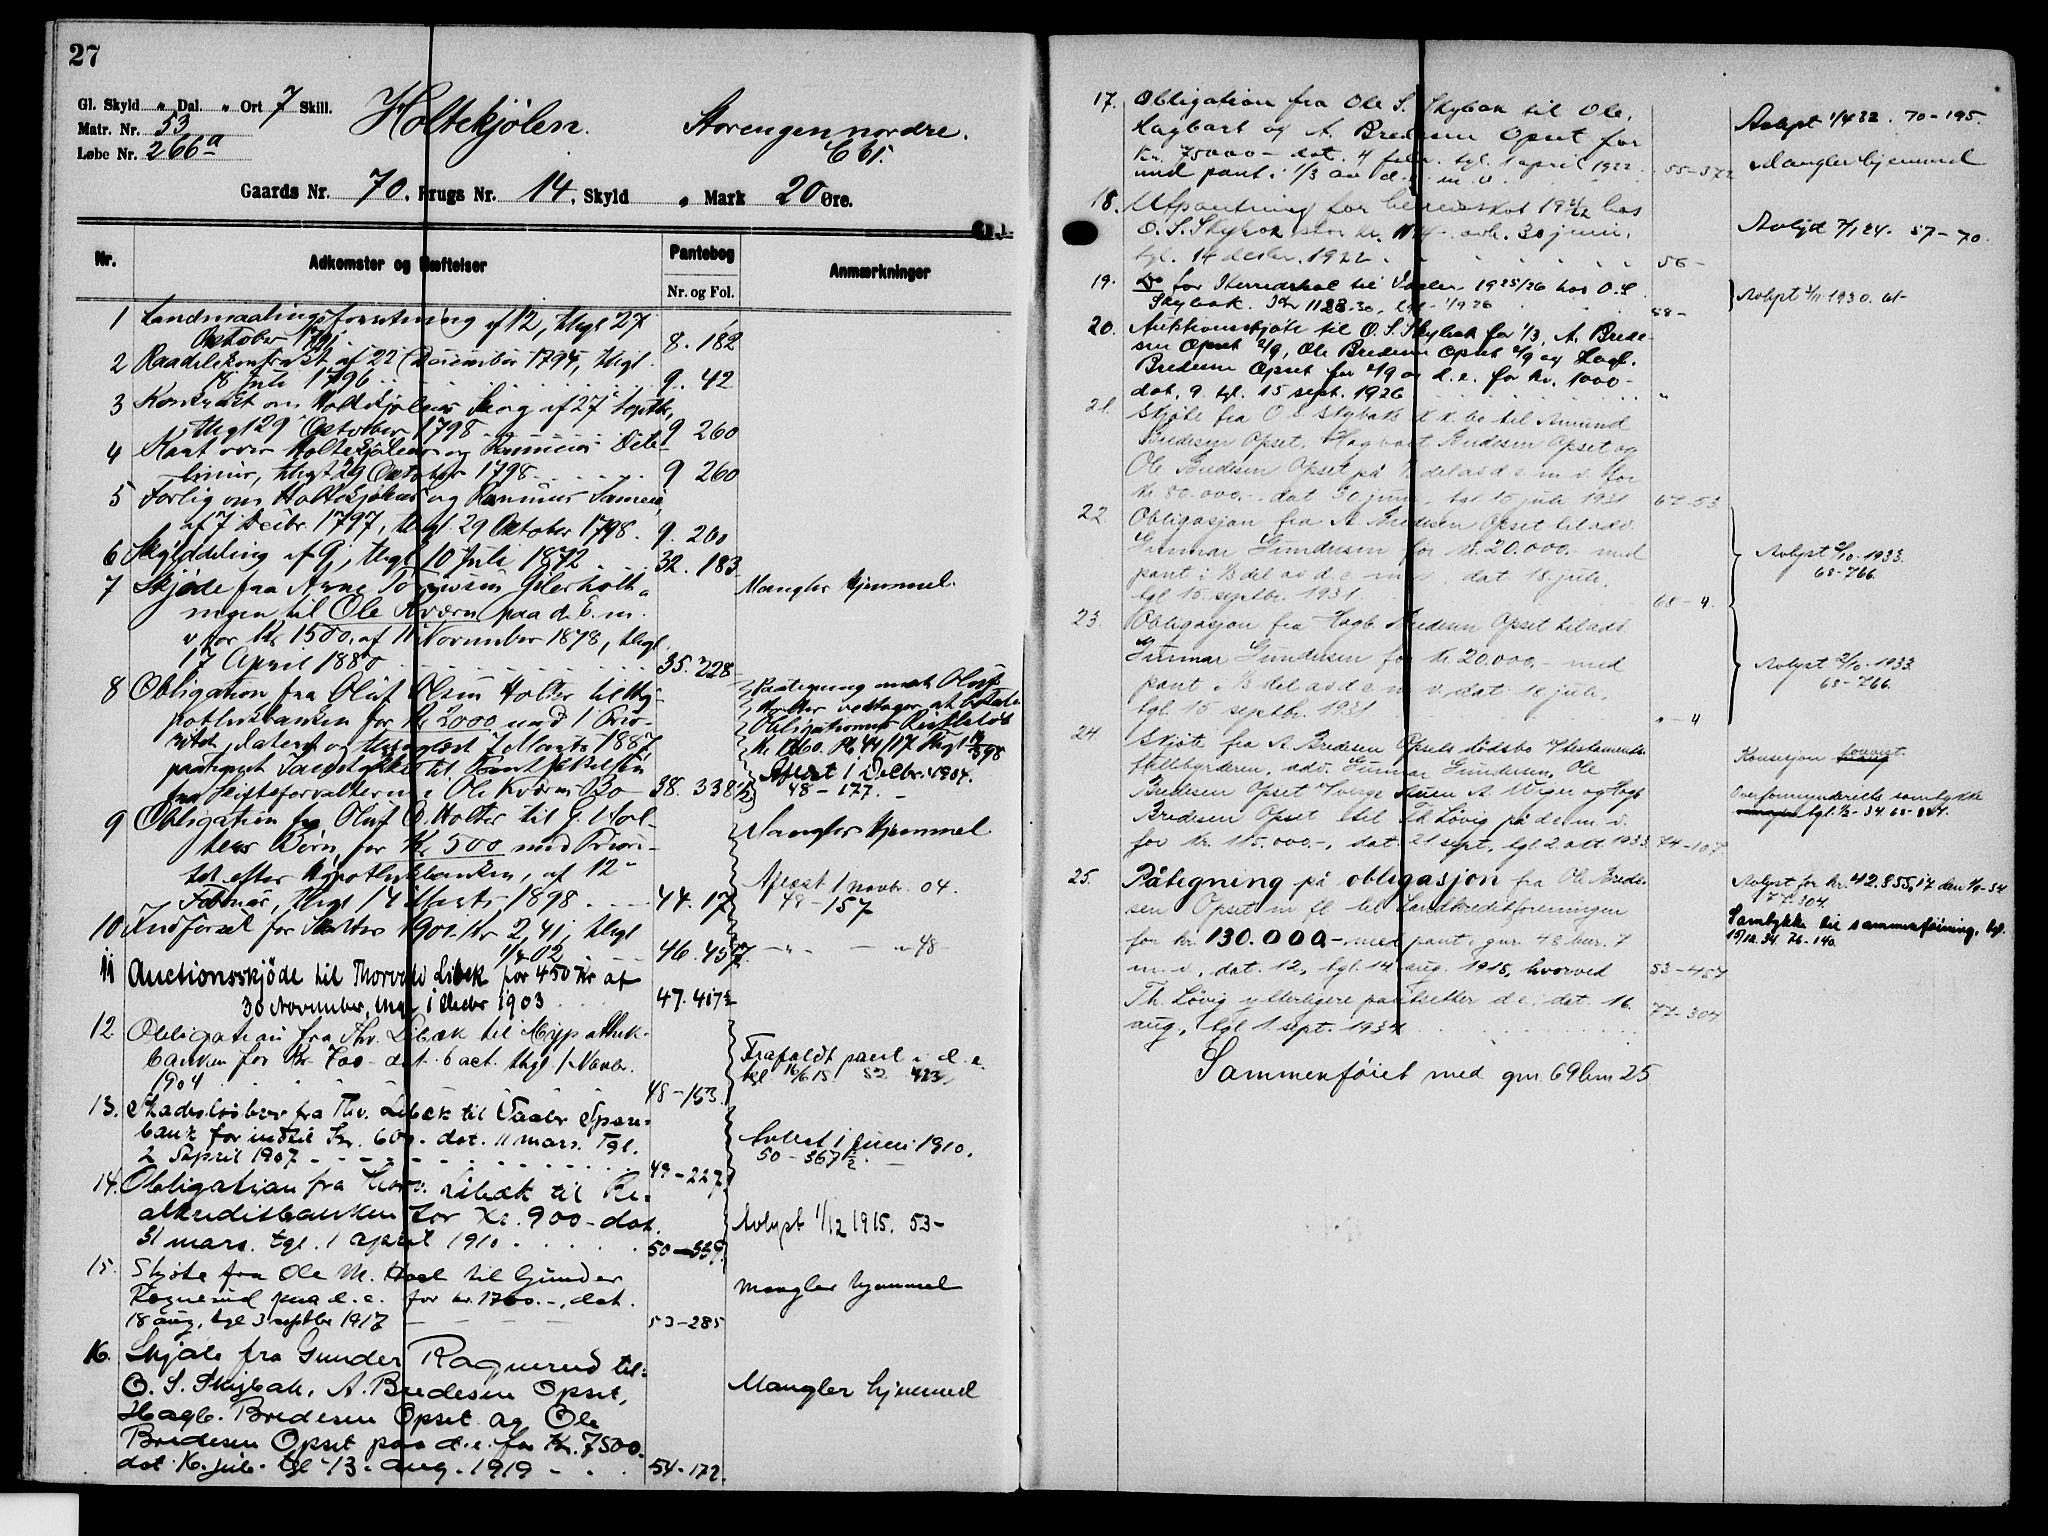 27
Gl. Skyld " Dal. " Ort 7 Skill.
Matr. Nr. 53
Løbe Nr. 266a
Holtekjølen. Storengen nordre.
Gaards Nr. 70, Brugs Nr. 14, Skyld " Mark 20 Øre.
Nr. Adkomster og Hæftelser Pantebog Anmærkninger
Nr. og Fol.
1 Landmaalingsforretning af 12, thgl 27
October 1791. 8. 182
2 af 22 December 1795, thgl
18 Juli 1796 9. 42
3 Kontrakt om Holtekjølens Skog af 27 Septb.,
thgl 29 October 1798 9 260
4 Kart over Holtekjølen og
linier, thgl 29 October 1798 9 260
5 Forlig om Holtekjølens og
af 7 Decbr 1797, thgl 29 October 1798. 9. 260
6 Skylddeling af 9, thgl 10 Juli 1872 32. 183
7 Skjøde fra Arne
til Ole Kværn paa d. E. m. Mangler hjemmel.
v for Kr 1500, af 11 November 1878, thgl
17 April 1880 35. 228
8 Obligation fra Oluf Olsen Holter til Hy-
pothekbanken for Kr 2000 med 1 Prio-
ritet, dateret og thinglæst 7 Marts 1887
Skifteforvalteren i Ole Kværns Bo 38. 338½
Kr 1360. Pb 44/17 thgl
Aflæst 1 Decbr. 1904.
48 – 177.
9 Obligation fra Oluf O. Holter til G. Hol-
ters Børn, for Kr 500 med Priori-
tet efter Hypothekbanken, af 12
Februar, thgl 14 Marts 1898 44. 17
Mangler Hjemmel
Aflæst 1 novbr. 04.
48 – 157
10 Indførsel for Skatter 1901 Kr 2,41, thgl
1/4 02 46. 457. – " – – " 48 –
11 Auctionsskjøde til Thorvald Libæk for 450 Kr af
30 November, thgl 1 Decbr 1903 47. 417½
12. Obligation fra Thv. Libæk til Hypothek-
banken for Kr. 700 – dat. 6 oct. thgl 1 Novbr.
1904 48 – 153.
Frafaldt pant i d. e.
tgl. 16/6 15. 52 423.
13. Skadesløsbrev fra Thv. Libæk til Vaaler Spare-
bank for indtil Kr. 600. dat. 11 mars. Tgl.
2 April 1907 49 – 227.
Avlæst 1 juni 1910.
50 – 367½.
14. Obligation fra Thorv. Libæk til Re-
alkreditbanken for Kr. 900 – dat.
31 mars. tgl. 1 april 1910 50 – 339.
Avlyst 1/12 1915. 53 –
15. Skjøte fra Ole M. Hoel til Gunder
Rognerud paa d. e. for kr. 1700. –, dat.
18 aug, tgl 3 septbr 1917 53 – 285
Mangler hjemmel
16. Skjøte fra Gunder Rognerud til
O. S. Skybak, A. Bredesen Opset,
Hagb. Bredesen Opset og Ole
Bredesen Opset paa d. e. for Kr. 7500.
dat. 16. juli. tgl 13. aug. 1919 54 – 172.
Mangler hjemmel
17. Obligation fra Ole S. Skybak til Ole,
Hagbart og A. Bredesen Opset for
Kr. 75000 – dat. 4 febr. tgl. 1 april 1922
med pant i 1/3 av d. e. m. v. 55 – 372
Avlyst 1/4 32. 70 – 195.
Mangler hjemmel
18. Utpantning for herredsskat 1921/22 hos
O. S. Skybak stor kr. avh. 30 juni,
tgl. 14 desbr. 1922 56 –
Avlyst 7/1 24. 57 – 70.
19. Do for Herredskat til Vaaler 1925/26 hos O. S.
Skybak. Kr 1123.30, tgl. 1/9 26 58 –
Avlyst 3/11 1930. 61 –
20. Auktionsskjøte til O. S. Skybak for 1/3, A. Brede-
sen Opset 2/9, Ole Bredesen Opset 2/9 og Hagb.
Bredesen Opset for 2/9 av d. e. for kr. 1000 –
dat. 9. tgl. 15 sept. 1926 "
21. Skjøte fra O. S. Skybak k.k. bo til Amund
Bredesen Opset, Hagbart Bredesen Opset og
Ole Bredesen Opset på 1/3 del av d. e. m. v. for
kr 80.000. –, dat 30 juni, tgl 15 juli 1931 67 – 53
22. Obligasjon fra A. Bredesen Opset til adv.
Gunnar Gundersen for kr. 20.000. – med
pant i 1/3 del av d. e. m. v. dat. 18. juli,
tgl. 15. septbr. 1931. 68 – 4.
Avlyst 2/10. 1933.
68 – 766.
23. Obligasjon fra Hagb. Bredesen Opset til adv.
Gunnar Gundersen for kr. 20.000. – med
pant i 1/3 del av d. e. m. v. dat. 18. juli,
tgl. 15 septbr. 1931 " – 4
Avlyst 2/10. 1933.
68 – 766.
24. Skjøte fra A. Bredesen Opsets dødsbo v/testaments-
fullbyrderen, adv. Gunnar Gundersen, Ole
Bredesen Opset v/verge A. og Hagb.
Bredesen Opset til Th. Løvig på d. e. m. v.
for kr. 115.000. –, dat. 21 sept., tgl. 2. okt 1933. 74 – 107
Konsesjon forevist
Overformynderiets samtykke
25. Påtegning på obligasjon fra Ole Brede-
sen Opset m. fl. til Landkreditforeningen
for kr. 130.000. – med pant i gnr. 48 bnr. 7
m. v., dat. 12, tgl. 14 aug. 1918, hvorved 53 – 457
Th. Løvig ytterligere pantsetter d. e. dat. 16.
aug., tgl 1. sept. 1934 77 – 304.
Avlyst for kr. 42.855,17 den 1/9 – 34
77. 304.
Samtykke til sammenføining, tgl.
15/12. 34. 76 – 140.
Sammenføiet med gnr. 69 bnr 25